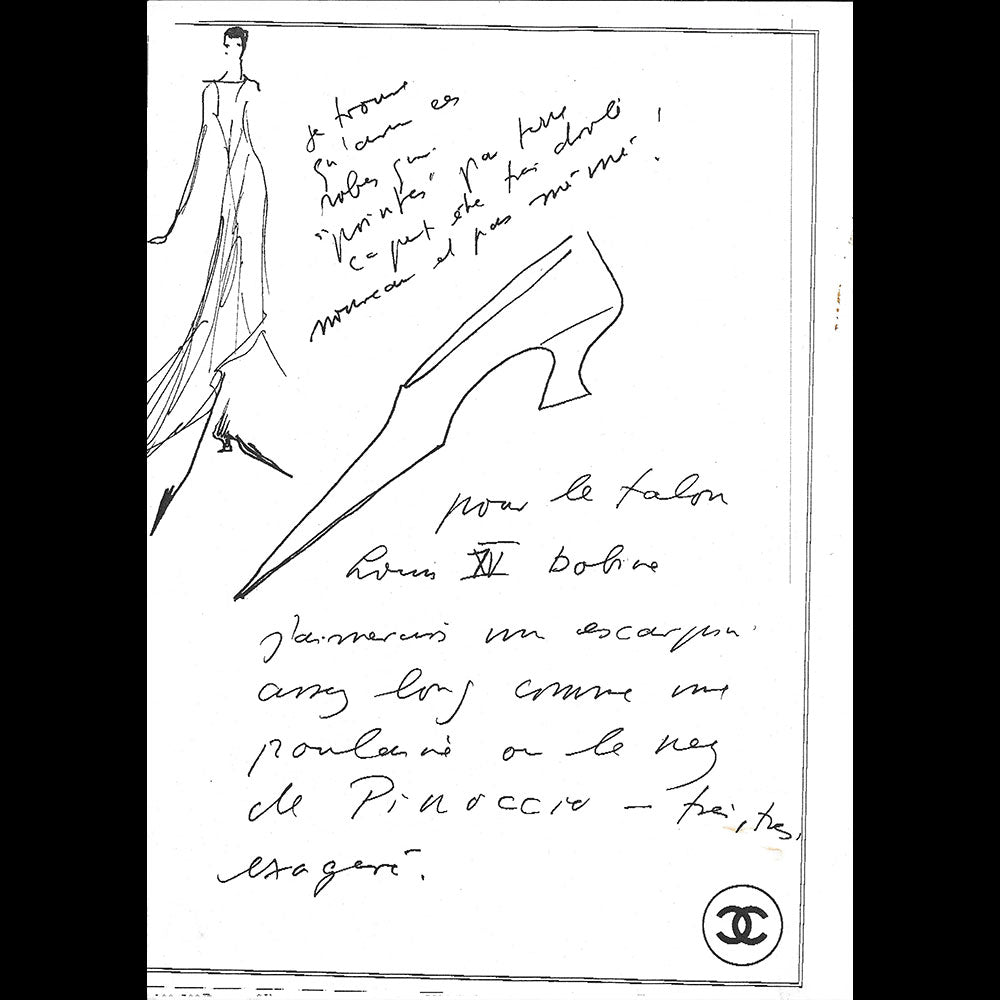 je trouve
qu'avec ces
robes qui
"pointes" par terre
ça peut être très drole
nouveau et pas mémé !
pour le talon
Louis XV bobine
j'aimerais un escarpin
assez long comme une
poulaine ou le nez
de Pinoccio – très, très,
exageré.